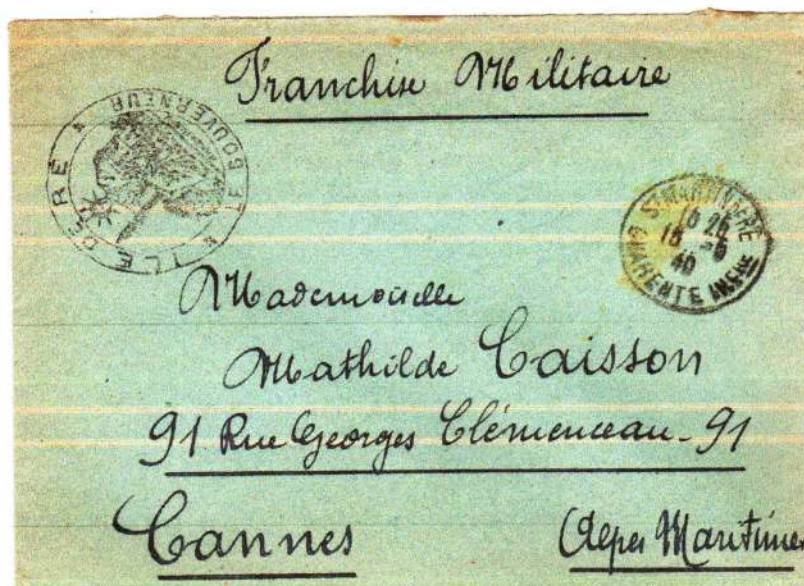 Franchise Militaire
LE GOUVERNEUR
ILE DE RÉ
ST MARTIN-DE-RE
40
CHARENTE INFRE
Mademoiselle
Mathilde Caisson
91 Rue Georges Clémenceau-91
Cannes (Alpes Maritimes